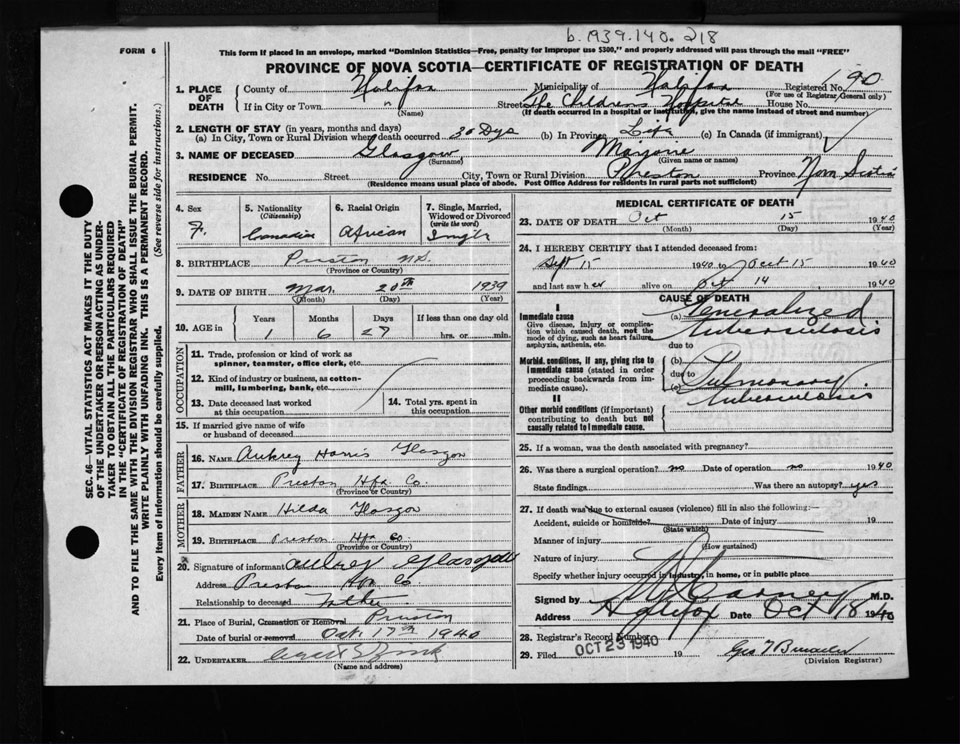 b.1939.140.218
FORM 6
This form if placed in an envelope, marked "Dominion Statistics—Free, penalty for improper use $300," and properly addressed will pass through the mail "FREE"
PROVINCE OF NOVA SCOTIA—CERTIFICATE OF REGISTRATION OF DEATH
1. PLACE OF DEATH
County of Halifax Municipality of Halifax Registered No. 190
(For use of Registrar General only)
If in City or Town (Name) Street The Childrens Hospital House No.
(If death occurred in a hospital or institution, give the name instead of street and number)
2. LENGTH OF STAY (in years, months and days)
(a) In City, Town or Rural Division where death occurred 30 Dys (b) In Province Life (c) In Canada (if immigrant)
3. NAME OF DECEASED Glasgow (Surname) Marjorie (Given name or names)
RESIDENCE No. Street City, Town or Rural Division Preston Province Nova Scotia
(Residence means usual place of abode. Post Office Address for residents in rural parts not sufficient)
4. Sex F.
5. Nationality (Citizenship) Canadian
6. Racial Origin African
7. Single, Married, Widowed or Divorced (write the word) Single
8. BIRTHPLACE Preston N.S.
(Province or Country)
9. DATE OF BIRTH Mar. 20th 1939
(Month) (Day) (Year)
10. AGE in Years Months Days If less than one day old
1 6 27 hrs. or min.
OCCUPATION
11. Trade, profession or kind of work as spinner, teamster, office clerk, etc.
12. Kind of industry or business, as cotton-mill, lumbering, bank, etc.
13. Date deceased last worked at this occupation
14. Total yrs. spent in this occupation
15. If married give name of wife or husband of deceased
FATHER
16. NAME Aubrey Harris Glasgow
17. BIRTHPLACE Preston Hfx Co.
(Province or Country)
MOTHER
18. MAIDEN NAME Hilda Glasgow
19. BIRTHPLACE Preston Hfx Co
(Province or Country)
20. Signature of informant Aubrey Glasgow
Address Preston Hfx Co.
Relationship to deceased Father
21. Place of Burial, Cremation or Removal Preston
Date of burial or removal Oct 17th 1940
22. UNDERTAKER
(Name and address)
MEDICAL CERTIFICATE OF DEATH
23. DATE OF DEATH Oct 15 1940
(Month) (Day) (Year)
24. I HEREBY CERTIFY that I attended deceased from:
Sept 15 1940 to Oct 15 1940
and last saw her alive on Oct 14 1940
CAUSE OF DEATH
I
Immediate cause
Give disease, injury or complication which caused death, not the mode of dying, such as heart failure, asphyxia, asthenia, etc.
(a) Generalized tuberculosis
due to
Morbid conditions, if any, giving rise to immediate cause (stated in order proceeding backwards from immediate cause).
(b)
due to
(c) Pulmonary tuberculosis
II
Other morbid conditions (if important) contributing to death but not causally related to immediate cause.
25. If a woman, was the death associated with pregnancy?
26. Was there a surgical operation? no Date of operation no 1940
State findings Was there an autopsy? yes
27. If death was due to external causes (violence) fill in also the following:—
Accident, suicide or homicide? Date of injury 19
(State which)
Manner of injury
(How sustained)
Nature of injury
Specify whether injury occurred in industry, in home, or in public place
Signed by Carney M.D.
Address Halifax Date Oct 18 1940
28. Registrar's Record Number
29. Filed OCT 23 1940 19
(Division Registrar)
SEC. 46—VITAL STATISTICS ACT MAKES IT THE DUTY
OF THE UNDERTAKER OR PERSON ACTING AS UNDER-
TAKER TO OBTAIN ALL THE PARTICULARS REQUIRED
IN THE "CERTIFICATE OF REGISTRATION OF DEATH"
AND TO FILE THE SAME WITH THE DIVISION REGISTRAR WHO SHALL ISSUE THE BURIAL PERMIT.
WRITE PLAINLY WITH UNFADING INK. THIS IS A PERMANENT RECORD.
Every item of information should be carefully supplied. (See reverse side for instructions.)